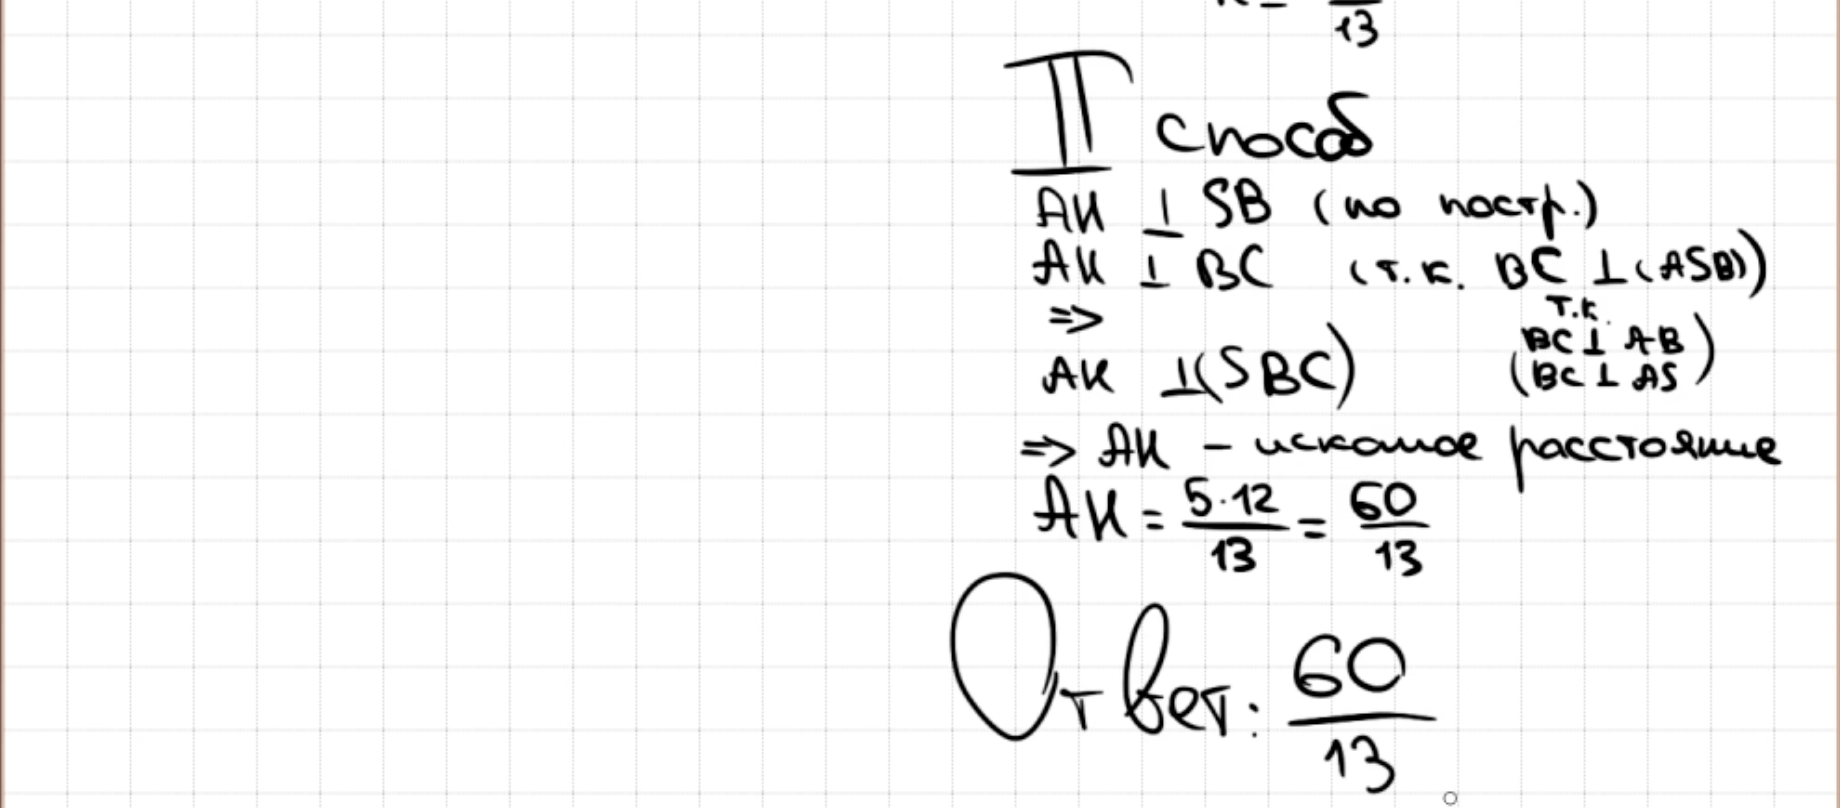 13
II способ
AK ⊥ SB (по постр.)
AK ⊥ BC (т.к. BC ⊥ (ASB))
=>
т.к.
BC ⊥ AB
AK ⊥ (SBC)
(BC ⊥ AS)
=> AK - искомое расстояние
AK = 5·12/13 = 60/13
Ответ: 60/13